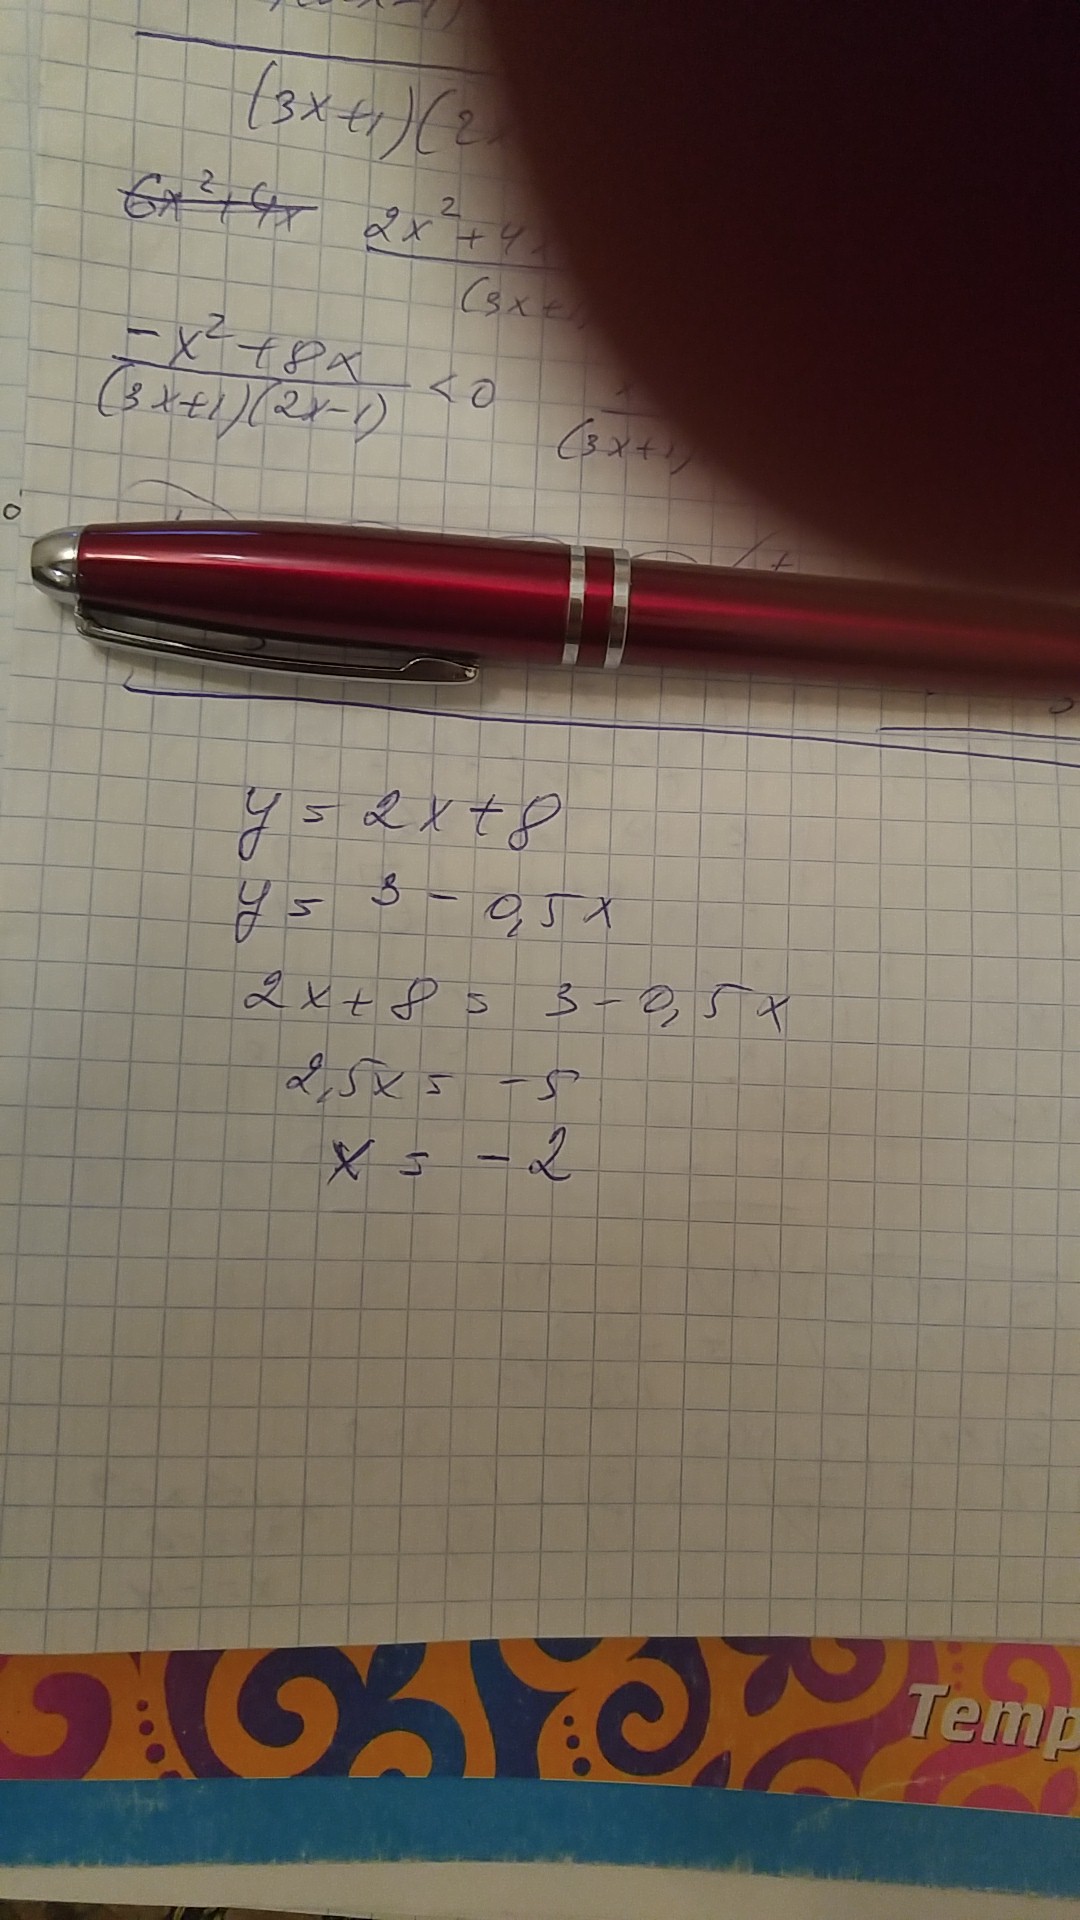 (3x+1)(2
6x²+4x
2x²+4
(3x+
-x²+8x
(3x+1)(2x-1) < 0
(3x+1)
+
y = 2x+8
y = 3 - 0,5x
2x+8 = 3 - 0,5x
2,5x = -5
x = -2
Temp